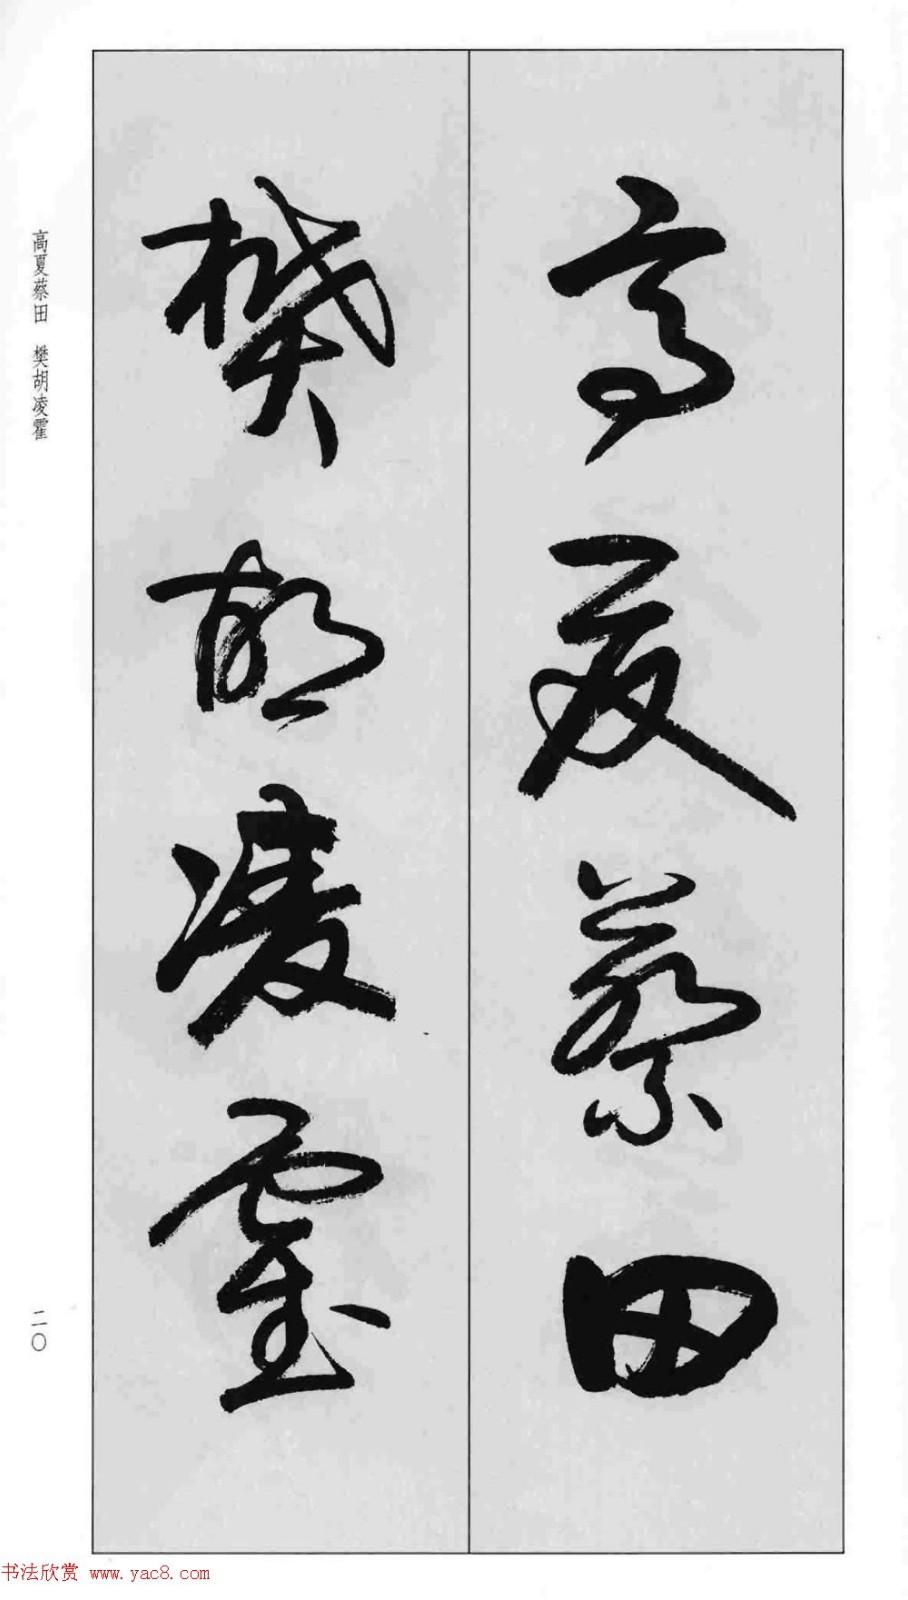 高夏蔡田
樊胡凌霍
高夏蔡田 樊胡凌霍
二〇
书法欣赏 www.yac8.com